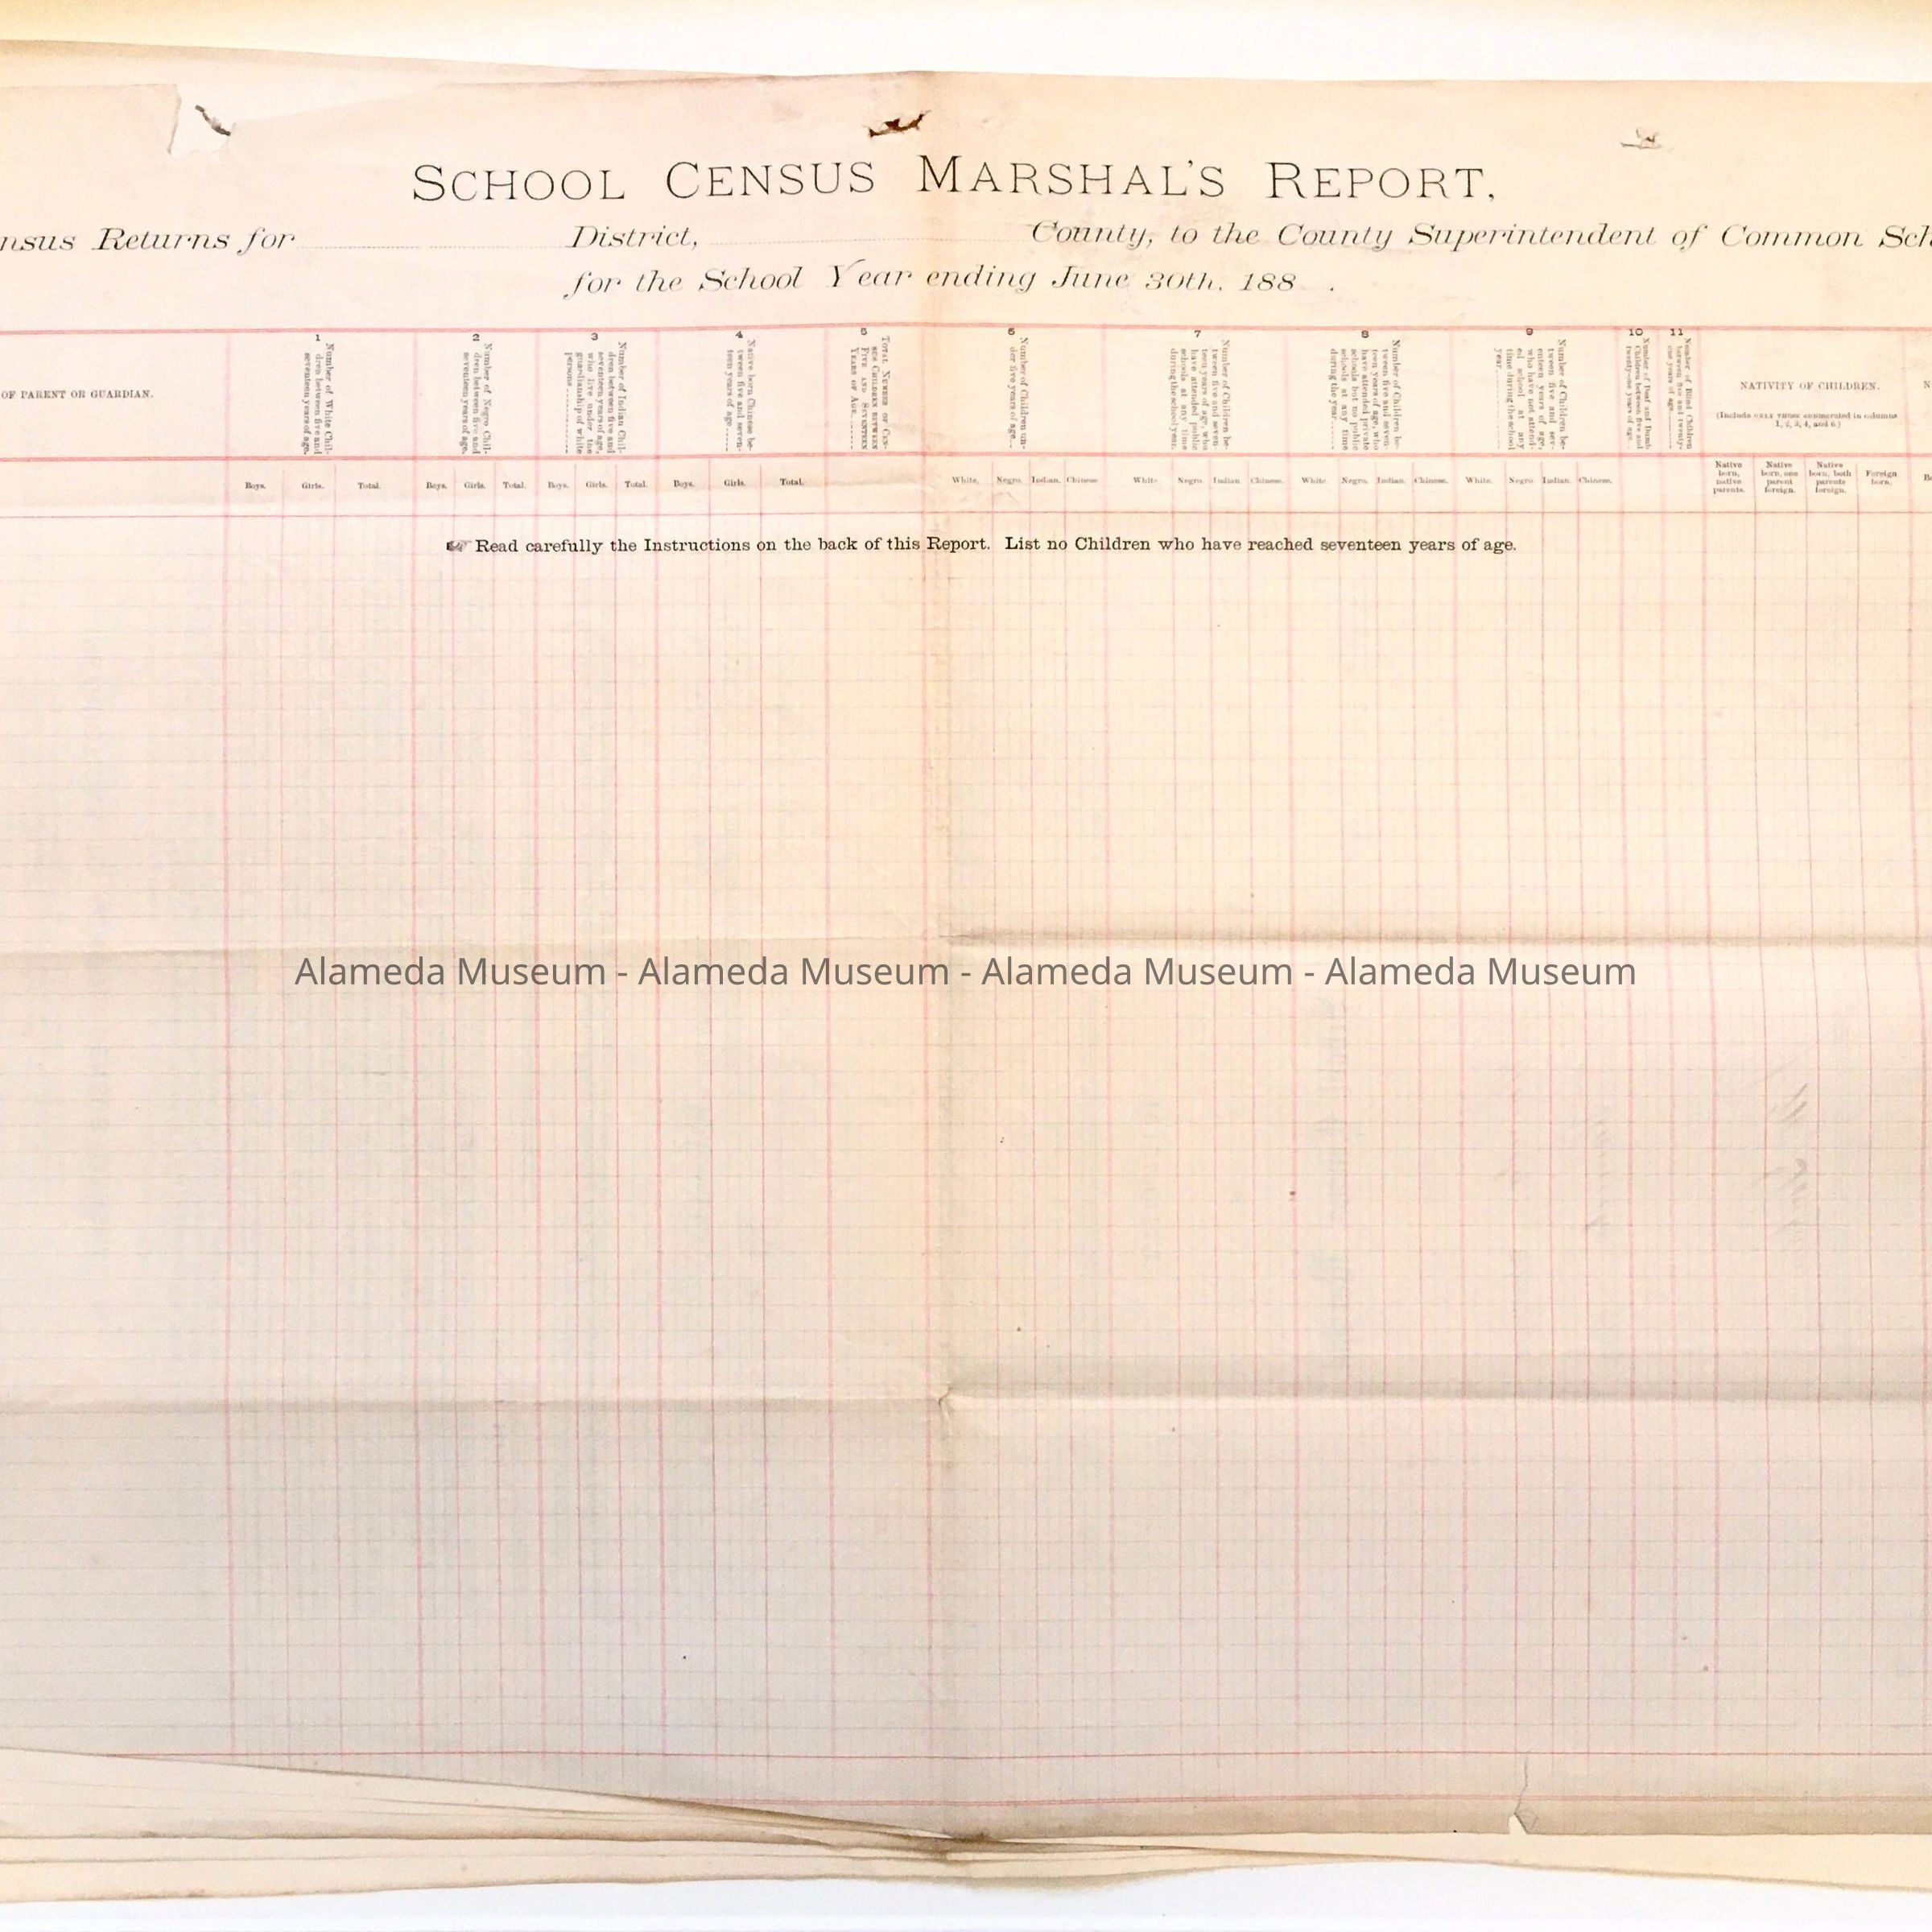 SCHOOL CENSUS MARSHAL'S REPORT,
nsus Returns for District, County, to the County Superintendent of Common Sch
for the School Year ending June 30th. 188 .
OF PARENT OR GUARDIAN.
1
Number of White Chil-
dren between five and
seventeen years of age.
2
Number of Negro Chil-
dren between five and
seventeen years of age.
3
Number of Indian Chil-
dren between five and
seventeen years of age,
who live under the
guardianship of white
persons
4
Native born Chinese be-
tween five and seven-
teen years of age
5
TOTAL NUMBER OF CEN-
SUS CHILDREN BETWEEN
FIVE AND SEVENTEEN
YEARS OF AGE
6
Number of Children un-
der five years of age
7
Number of Children be-
tween five and seven-
teen years of age, who
have attended public
schools at any time
during the school year.
8
Number of Children be-
tween five and seven-
teen years of age, who
have attended private
schools but no public
schools at any time
during the year
9
Number of Children be-
tween five and sev-
enteen years of age,
who have not attend-
ed school at any
time during the school
year
10
Number of Deaf and Dumb
Children between five and
twenty-one years of age.
11
Number of Blind Children
between five and twenty-
one years of age
NATIVITY OF CHILDREN.
(Include ONLY THOSE enumerated in columns
1, 2, 3, 4, and 6.)
Boys. Girls. Total. Boys. Girls. Total. Boys. Girls. Total. Boys. Girls. Total. White. Negro. Indian. Chinese. White. Negro. Indian. Chinese. White. Negro. Indian. Chinese. White. Negro. Indian. Chinese.
Native born, native parents.
Native born, one parent foreign.
Native born, both parents foreign.
Foreign born.
☞ Read carefully the Instructions on the back of this Report. List no Children who have reached seventeen years of age.
Alameda Museum - Alameda Museum - Alameda Museum - Alameda Museum